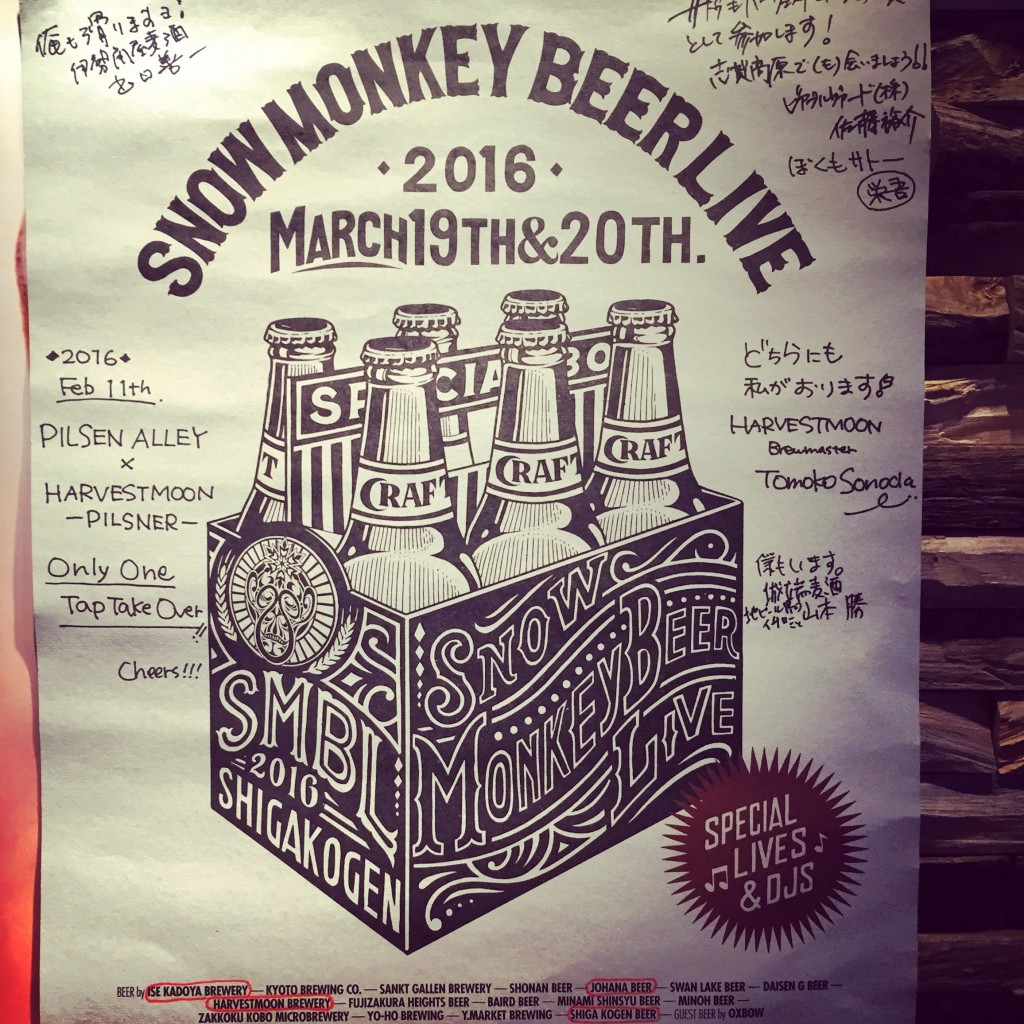 俺も滑ります!
伊勢角屋麦酒
として参加します!
志賀高原で(も)会いましょう!!
佐藤裕介
ぼくもサトー
栄吾
SNOW MONKEY BEER LIVE
・2016・
MARCH 19TH & 20TH.
◆2016◆
Feb 11th.
PILSEN ALLEY
×
HARVESTMOON
-PILSNER-
Only One
Tap Take Over!!
Cheers!!!
どちらにも
私がおります♪
HARVESTMOON
Brewmaster
Tomoko Sonoda
僕もいます。
城端麦酒
山本 勝
SPECIAL BO
CRAFT
CRAFT
CRAFT
T
SMBL
-2016-
SHIGAKOGEN
SNOW
MONKEY BEER
LIVE
SPECIAL
LIVES
& DJS
BEER by ISE KADOYA BREWERY — KYOTO BREWING CO. — SANKT GALLEN BREWERY — SHONAN BEER — JOHANA BEER — SWAN LAKE BEER — DAISEN G BEER —
HARVESTMOON BREWERY — FUJIZAKURA HEIGHTS BEER — BAIRD BEER — MINAMI SHINSYU BEER — MINOH BEER —
ZAKKOKU KOBO MICROBREWERY — YO-HO BREWING — Y.MARKET BREWING — SHIGA KOGEN BEER — GUEST BEER by OXBOW